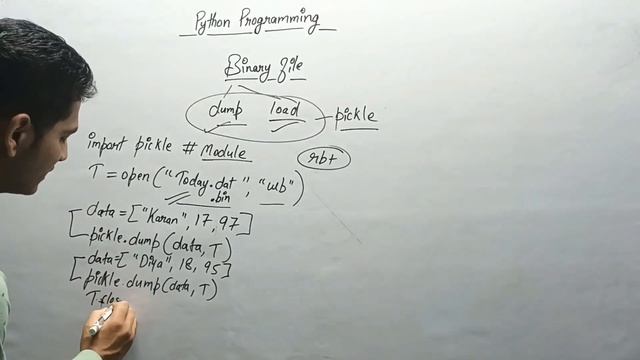 Python Programming
Binary file
dump load - pickle
import pickle # Module
rb+
T = open("Today.dat", "wb")
.bin
data = ["Karan", 17, 97]
pickle.dump(data, T)
data = ["Diya", 18, 95]
pickle.dump(data, T)
T.clos